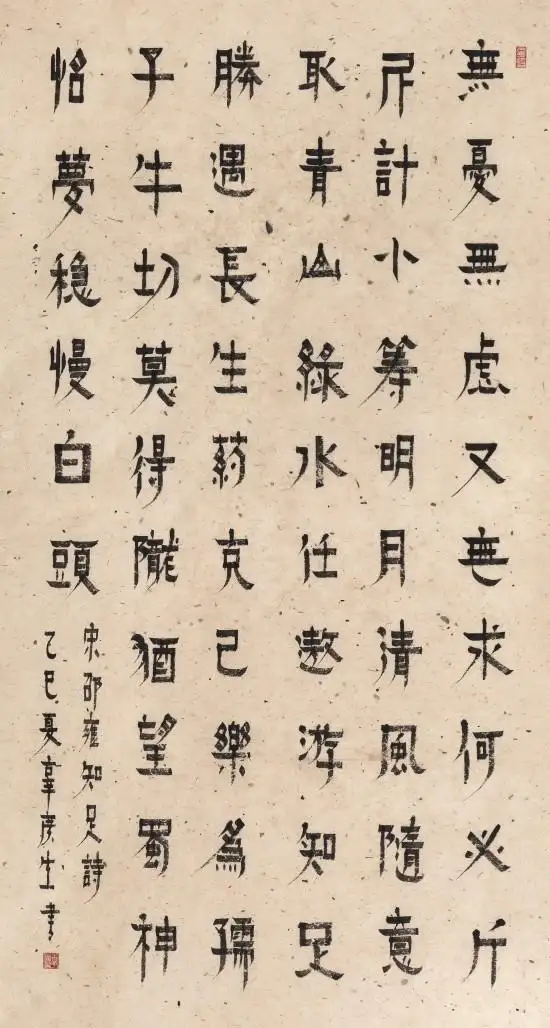 無憂無虑又無求何必斤
斤計小筹明月清風隨意
取青山綠水任遨游知足
勝遇長生葯克己樂爲孺
子牛切莫得隴猶望蜀神
怡夢稳慢白頭
宋邵雍知足詩
乙巳夏彦生書